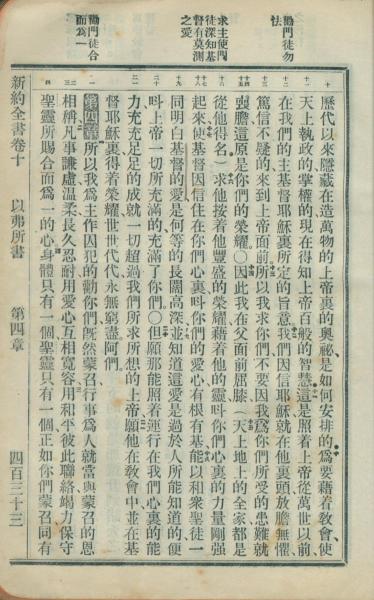 勸門徒勿
怯
求主使門
徒深知基
督有莫測
之愛
勸門徒合
而爲一
歷代以來隱藏在造萬物的上帝裏的奧祕是如何安排的爲要藉着敎會使
天上執政的掌權的現在得知上帝百般的智慧這是照着上帝從萬世以前
在我們的主基督耶穌裏所定的旨意我們因信耶穌就在他裏頭放膽無懼
篤信不疑的來到上帝面前所以我求你們不要因我爲你們所受的患難就
喪膽這原是你們的榮耀〇因此我在父面前屈膝(天上地上的全家都是
從他得名)求他按着他豐盛的榮耀藉着他的靈呌你們心裏的力量剛强
起來使基督因信住在你們心裏呌你們的愛心有根有基能以和衆聖徒一
同明白基督的愛是何等的長闊高深並知道這愛是過於人所能知道的便
呌上帝一切所充滿的充滿了你們〇但願那能照着運行在我們心裏的能
力充充足足的成就一切超過我們所求所想的上帝願他在敎會中並在基
督耶穌裏得着榮耀世世代代永無窮盡阿們
第四章 所以我爲主作囚犯的勸你們旣然蒙召行事爲人就當與蒙召的恩
相稱凡事謙虛溫柔長久忍耐用愛心互相寬容用和平彼此聯絡竭力保守
聖靈所賜合而爲一的心身體只有一個聖靈只有一個正如你們蒙召同有
新約全書卷十 以弗所書 第四章 四百三十三